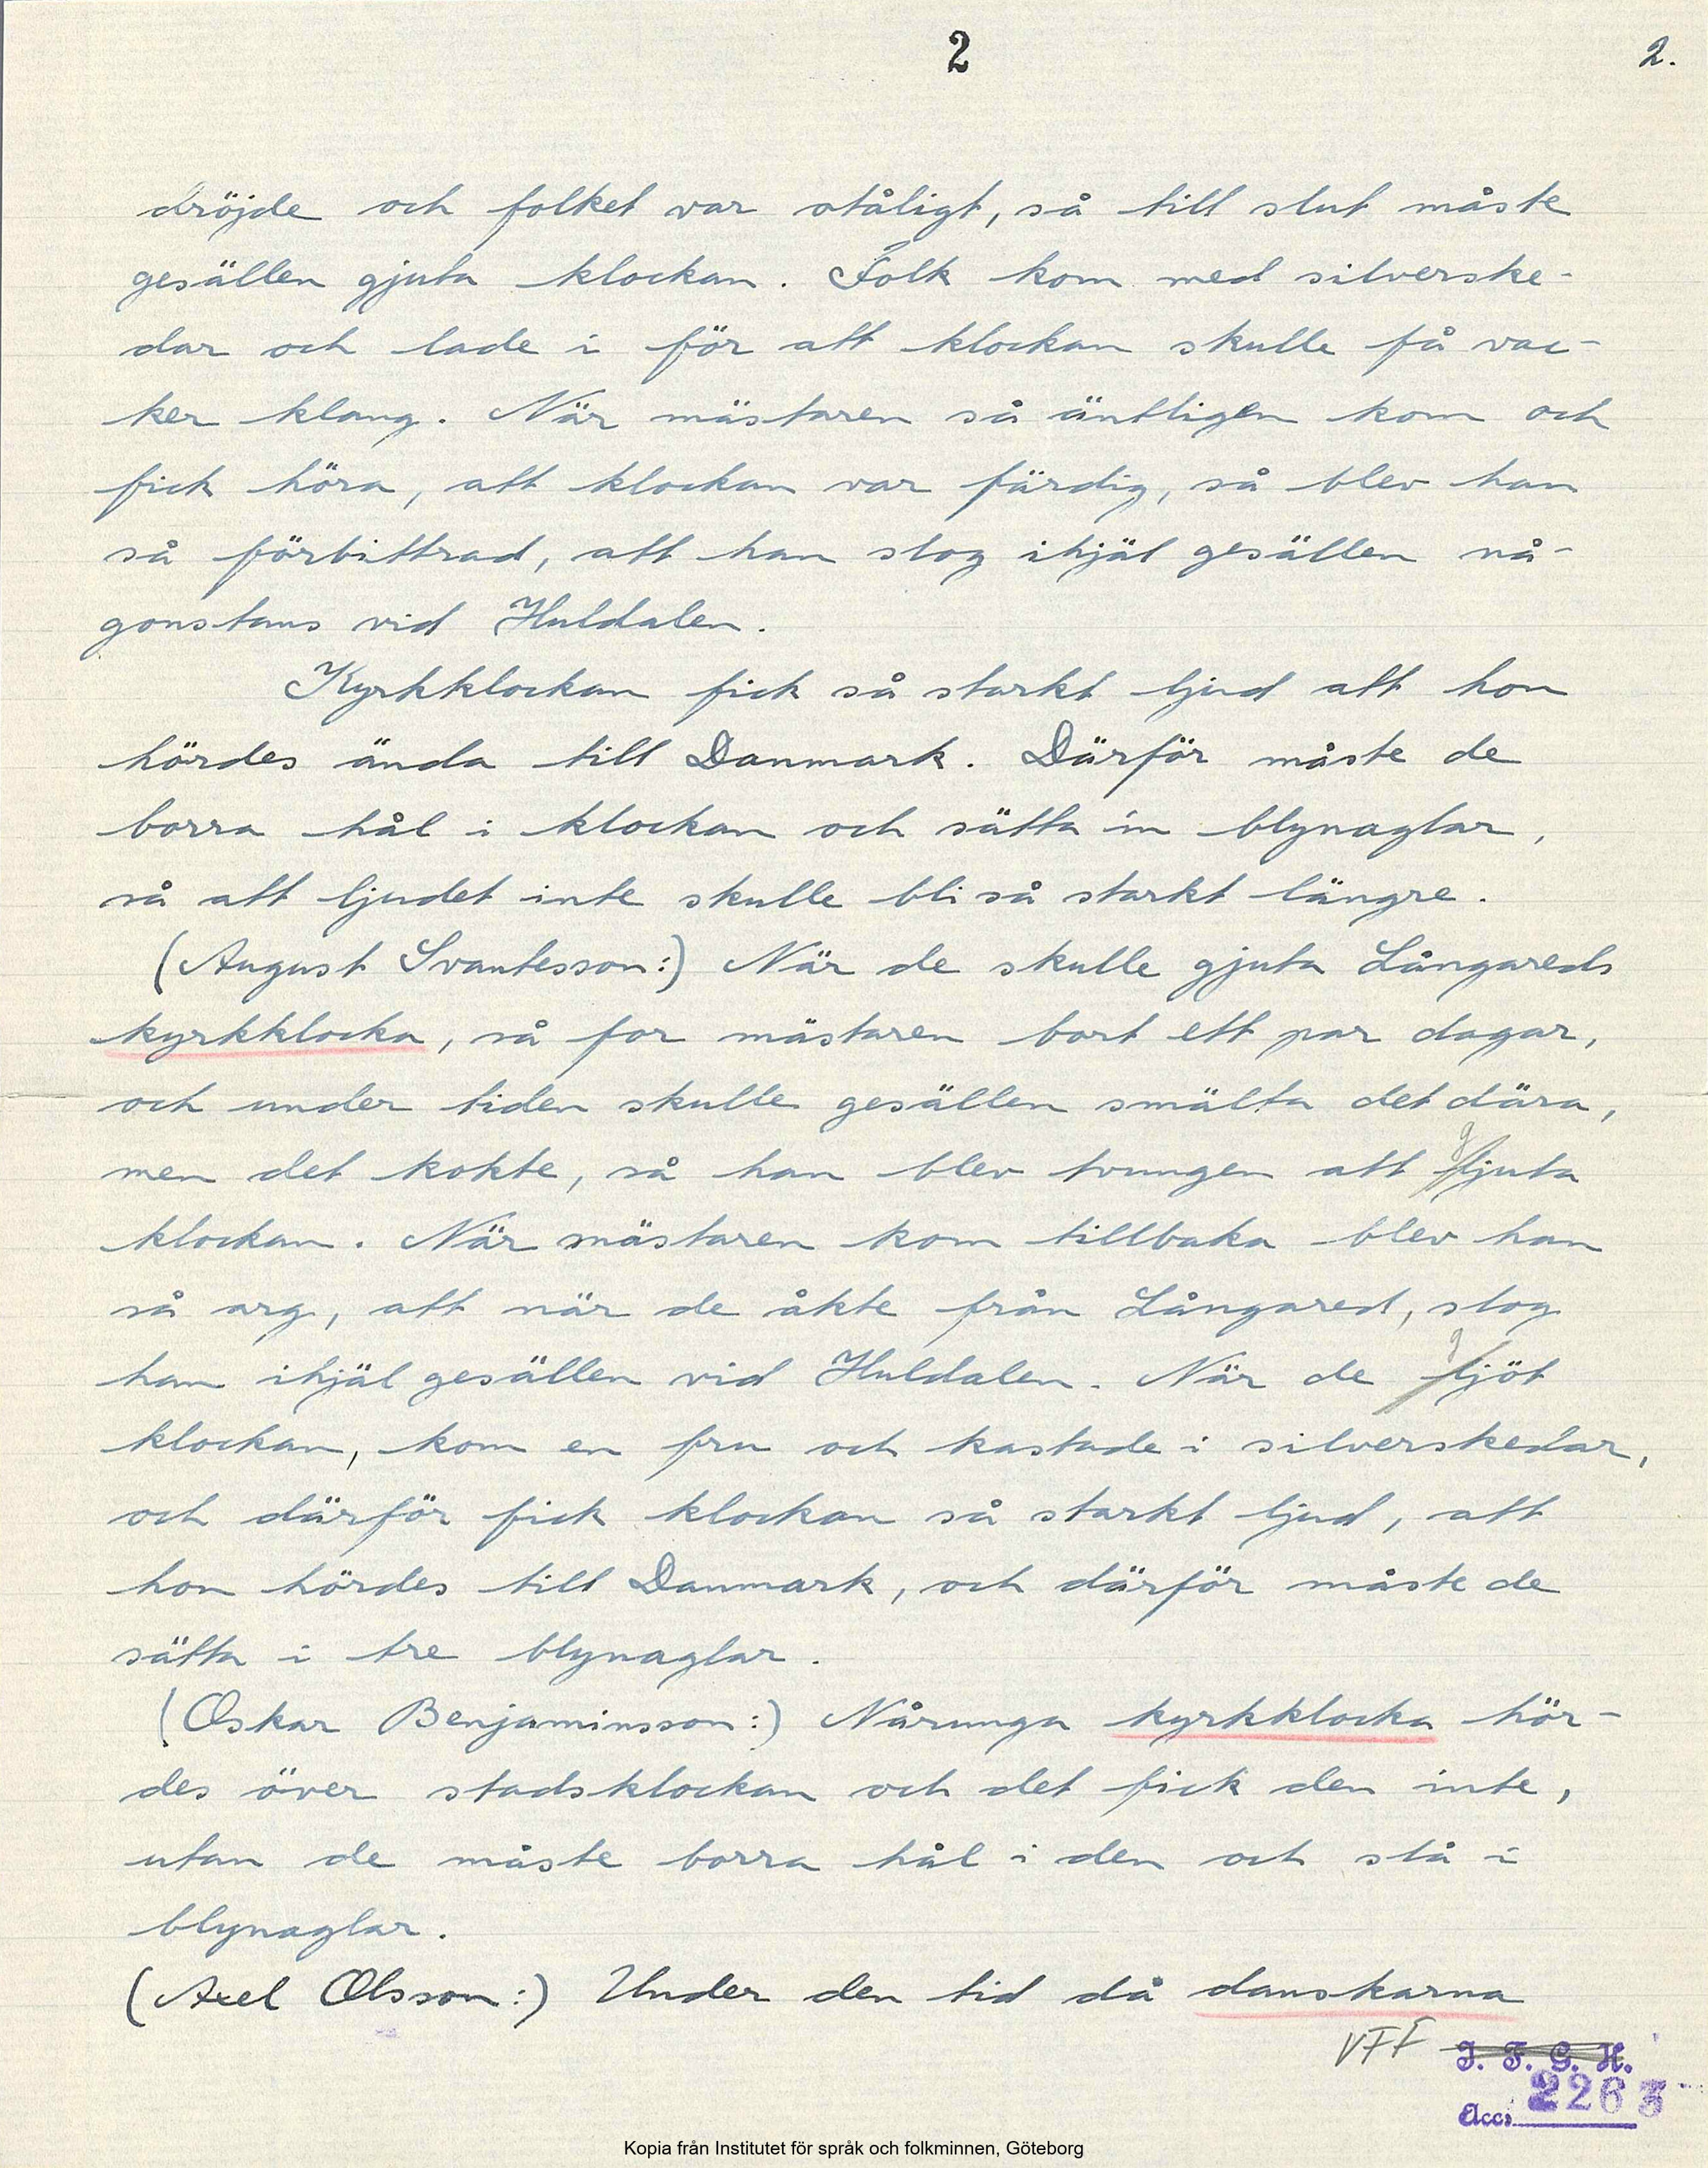 2
2.
dröjde och folket var otåligt, så till slut måste
gesällen gjuta klockan. Folk kom med silverske-
dar och lade i för att klockan skulle få vac-
ker klang. När mästaren så äntligen kom och
fick höra, att klockan var färdig, så blev han
så förbittrad, att han slog ihjäl gesällen nå-
gonstans vid Huldalen.
Kyrkklockan fick så starkt ljud att hon
hördes ända till Danmark. Därför måste de
borra hål i klockan och sätta in blynaglar,
så att ljudet inte skulle bli så starkt längre.
(August Svantesson:) När de skulle gjuta Långareds
kyrkklocka, så for mästaren bort ett par dagar,
och under tiden skulle gesällen smälta det dära,
men det kokte, så han blev tvungen att gjuta
klockan. När mästaren kom tillbaka blev han
så arg, att när de åkte från Långared, slog
han ihjäl gesällen vid Huldalen. När de gjöt
klockan, kom en fru och kastade i silverskedar,
och därför fick klockan så starkt ljud, att
hon hördes till Danmark, och därför måste de
sätta i tre blynaglar.
(Oskar Benjaminsson:) Nårunga kyrkklocka hör-
des över stadsklockan och det fick den inte,
utan de måste borra hål i den och slå i
blynaglar.
(Axel Olsson:) Under den tid då danskarna
VFF I. F. G. H.
Acc. 2263
Kopia från Institutet för språk och folkminnen, Göteborg